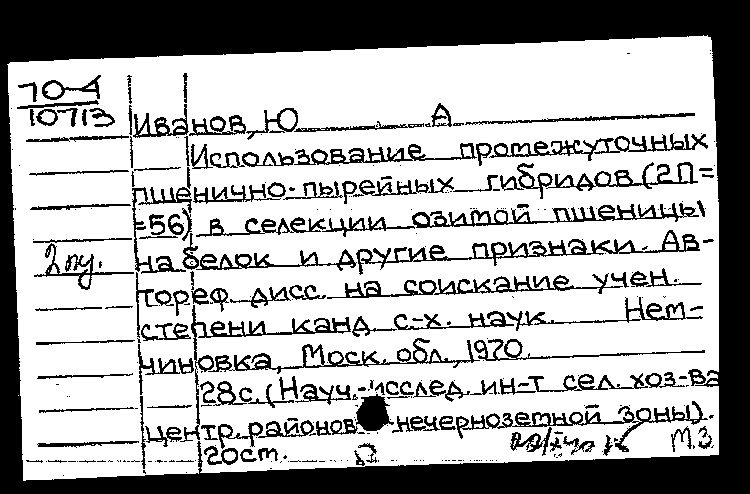 70-4
10713
Иванов, Ю А
Использование промежуточных
пшенично-пырейных гибридов (2П=
=56) в селекции озимой пшеницы
2 пу.
на белок и другие признаки. Ав-
тореф. дисс. на соискание учен.
степени канд. с-х. наук. Нем-
чиновка, Моск. обл., 1970.
28с. (Науч.-исслед. ин-т сел. хоз-ва
центр. районов нечерноземной зоны).
20см.
М.З.